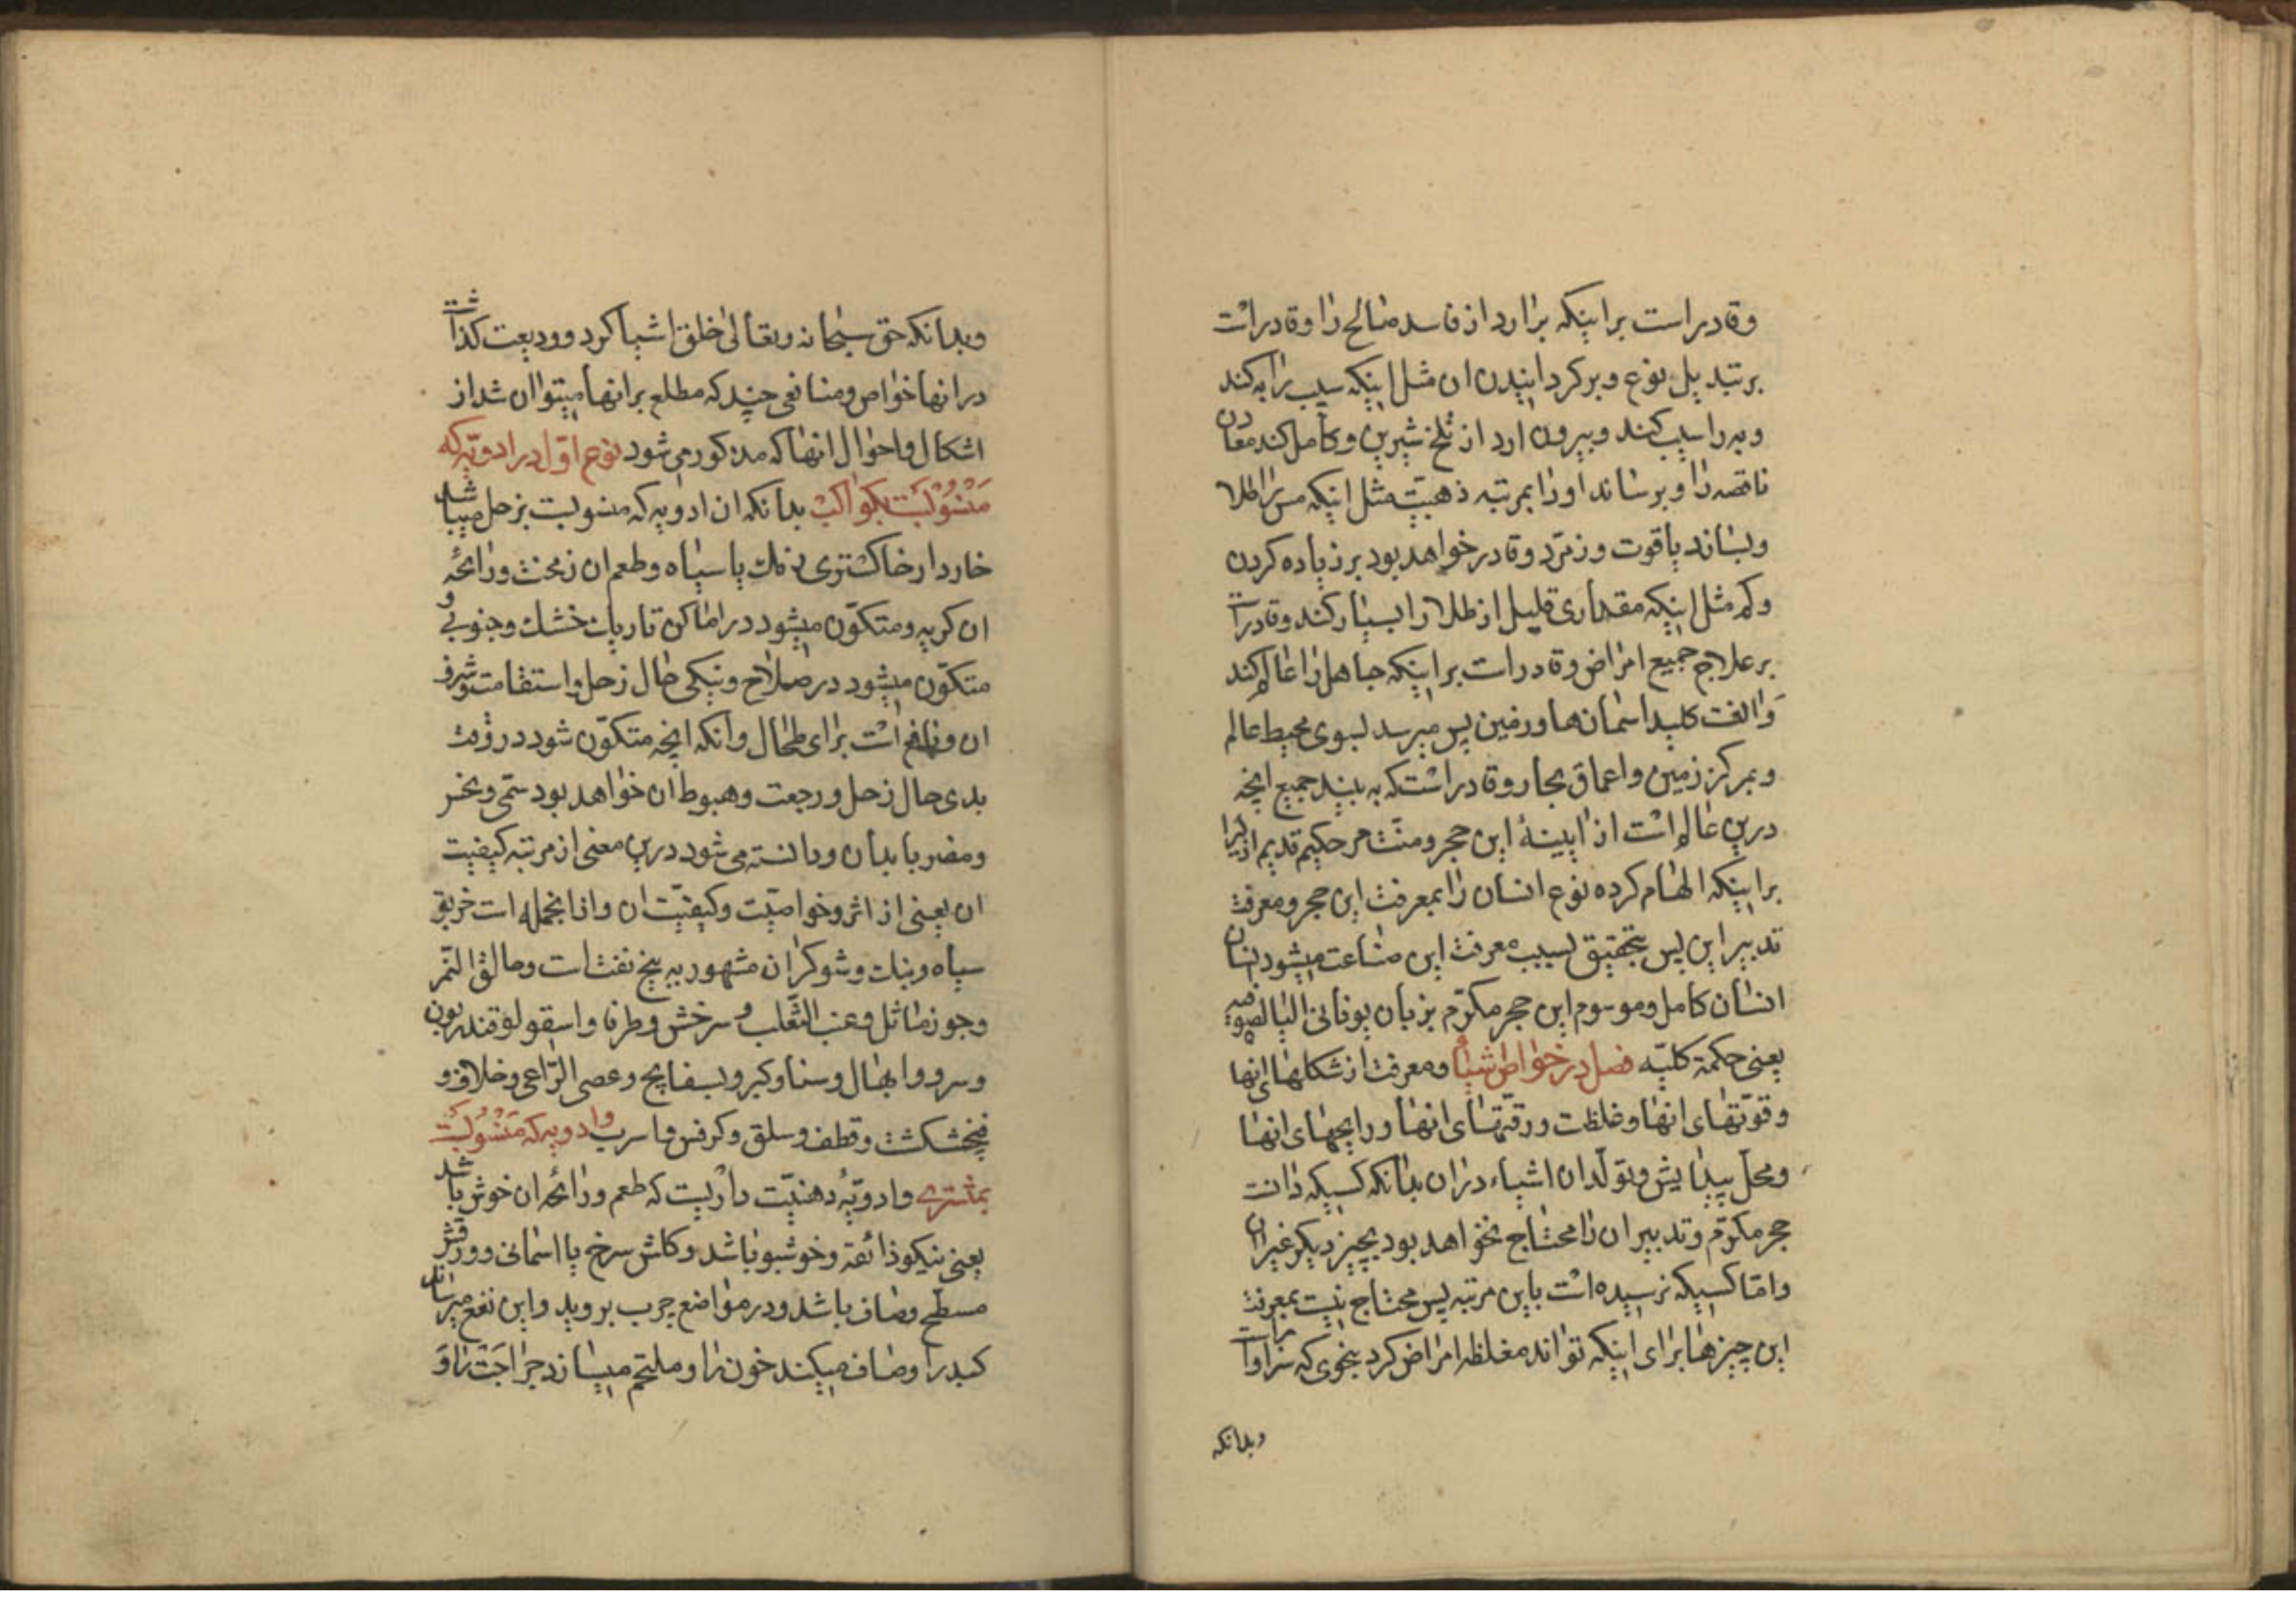 وقادر است بر اینکه برارد از فاسد صالح را وقادر است
بر تبدیل نوع وبر کردانیدن ان مثل اینکه سیب را به کند
وبه را سیب کند وبیرون ارد از تلخ شیرین وکامل کند معادن
ناقصه را وبرساند اورا بمرتبه ذهبیّت مثل اینکه مس را طلا
وبسازد یاقوت وزمرّد وقادر خواهد بود بر زیاده کردن
وکم مثل اینکه مقداری قلیل از طلا را بسیار کند وقادر است
بر علاج جمیع امراض وقادر است بر اینکه جاهل را عالم کند
والفت کلید اسمان‌ها وزمین پس میرسد بسوی محیط عالم
وبمرکز زمین واعماق بحار وقادر است که به بیند جمیع انچه
درین عالم است از ایینهٔ این حجر ومنّت مر حکیم قدیم ازلیرا
بر اینکه الهام کرده نوع انسان را بمعرفت این حجر ومعرفت
تدبیر این پس بتحقیق بسبب معرفت این صناعت میشود انسان
انسان کامل وموسوم این حجر مکرّم بزبان یونانی
یعنی حکمة کلیّه فصل در خواص اشیا ومعرفت از شکلهای انها
وقوّتهای انها وغلظت ورقّتهای انها ورایحهای انها
ومحلّ پیدایش وتولّد ان اشیاء دران بدانکه کسیکه دانست
حجر مکرّم وتدبیر ان را محتاج نخواهد بود بچیز دیکر غیر ان
وامّا کسیکه نرسیده است باین مرتبه پس محتاج نیست بمعرفت
این چیزها برای اینکه تواند مغلظه امراض کرد بنحوی که سزاوار است
وبدانکه
وبدانکه حق سبحانه وتعالی خلق اشیا کرد وودیعت کذاشت
در انها خواص ومنافعی چند که مطلع بر انها میتوان شد از
اشکال واحوال انها که مذکور می شود نوع اوّل در ادویّه که
منسوبست بکواکب بدانکه ان ادویه که منسوبست بزحل میباشد
خاردار خاکستری رنك یا سیاه وطعم ان زمخت ورائحهٔ
ان کریه ومتکوّن میشود در اماکن تاریك خشك وجنوبی و
متکوّن میشود در صلاح ونیکی حال زحل واستقامت وشرف
ان ونافع است برای طحال وانکه انچه متکوّن شود در وقت
بدی حال زحل ورجعت وهبوط ان خواهد بود سمّی ونحس
ومضر بابدان ودانسته می شود درین معنی از مرتبه کیفیت
ان یعنی از اثر وخواصیّت وکیفیّت ان وازانجمله است خربق
سیاه وبنك وشوکران مشهور به بیخ تفت است وحالق الشعر
وجوز ماثل وعنب الثّعلب وسرخش وطرفا واسقولوقندریون
وسرو وابهال وسنا وکبر وبسفایج وعصی الرّاعی وخلاف و
فنجنکشت وقطف وسلق وکرفس وماسرب وادویه که منسوبست
بمشتری وادویّهٔ دهنیّت داریست که طعم ورائحهٔ ان خوش باشد
یعنی نیکو ذائقه وخوشبو باشد وکلش سرخ یا اسمانی وورقش
مسطّح وصاف باشد ودر مواضع چرب بروید واین نفع میرساند
کبد را وصاف میکند خون را وملتحم میسازد جراحت را و